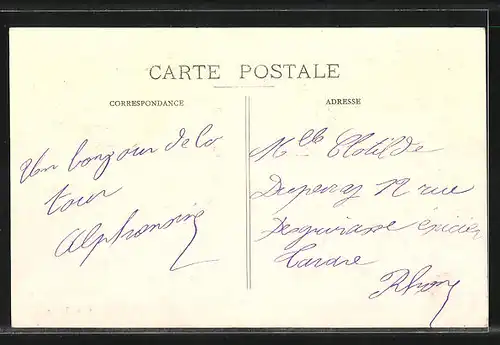 CARTE POSTALE
CORRESPONDANCE
ADRESSE
Un bonjour de la
tour
Alphonsine
Mlle Clotilde
Duperay 12 rue
épicier
Tarare
Rhone